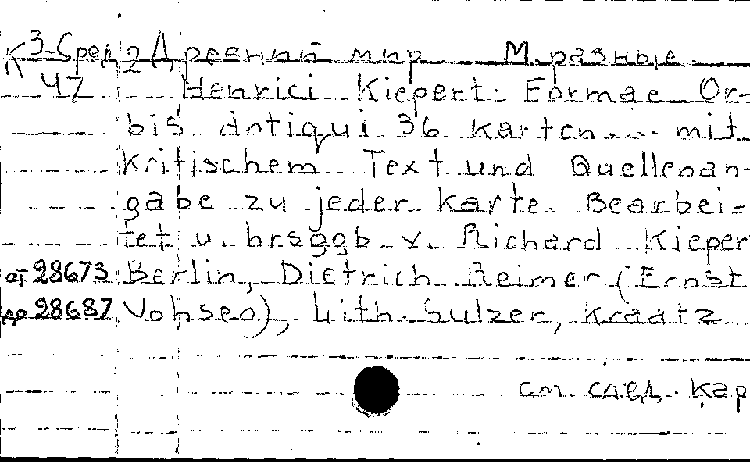 К 3-Сред 2 Древний мир М. разные
47 Henrici Kiepert. Formae Or-
bis antiqui 36 karten... mit
kritischem Text und Quellenan-
gabe zu jeder karte. Bearbei-
tet u. hrsggb v. Richard Kieper
от 28673 Berlin, Dietrich Reimer (Ernst
до 28687 Vohsen), Lith. Sulzer, Kraatz
см. след. кар